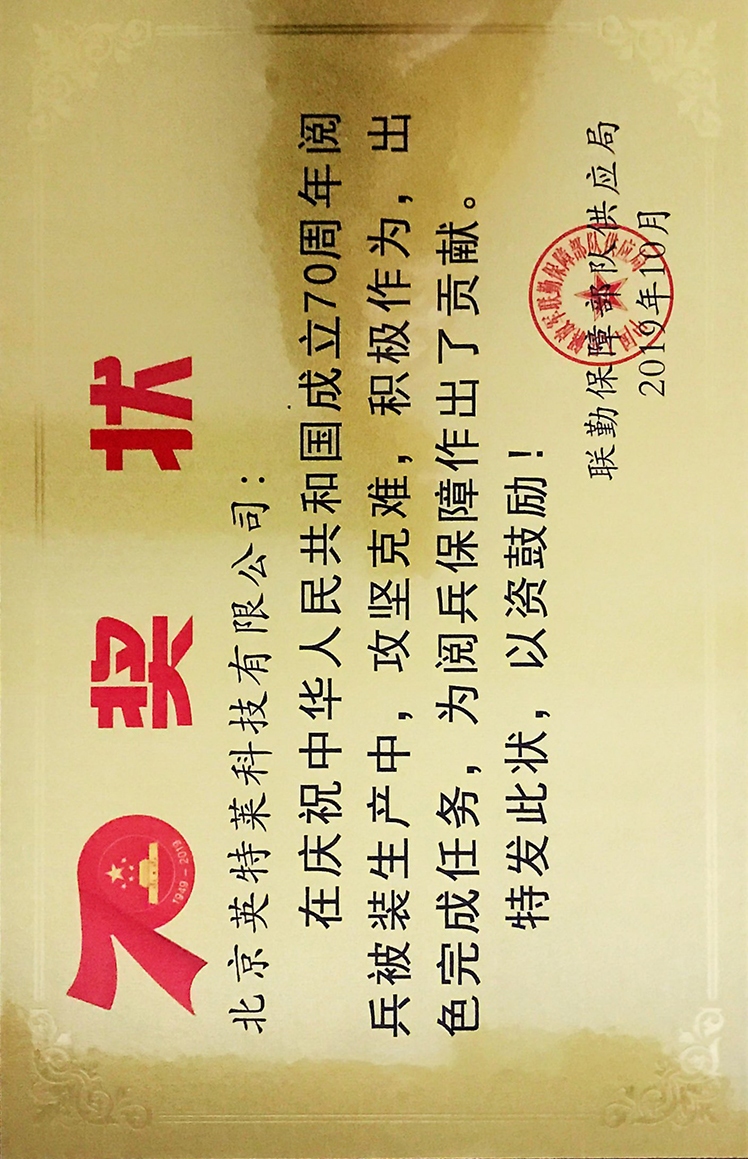 奖状
1949-2019
北京英特莱科技有限公司：
在庆祝中华人民共和国成立70周年阅
兵被装生产中，攻坚克难，积极作为，出
色完成任务，为阅兵保障作出了贡献。
特发此状，以资鼓励！
联勤保障部队供应局
2019年10月